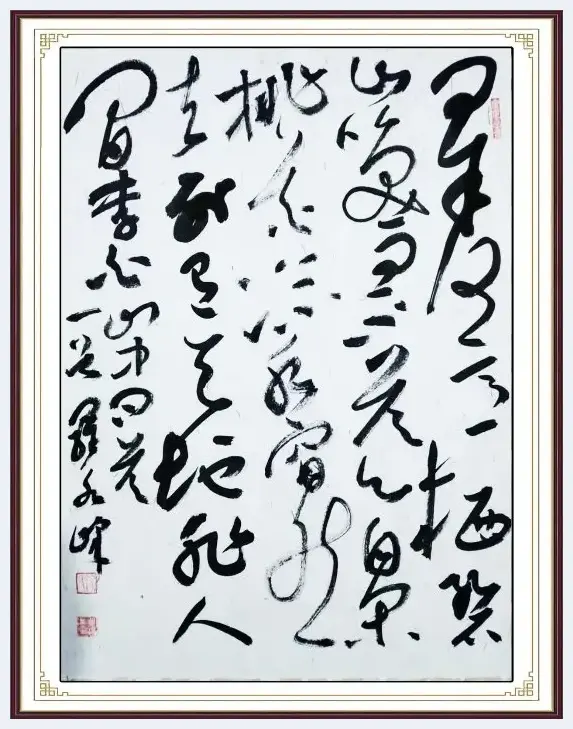 問余何意栖碧
山笑而不答心自閑
桃花流水窅然
去别有天地非人
間李白
山中问答
一首羅永峰